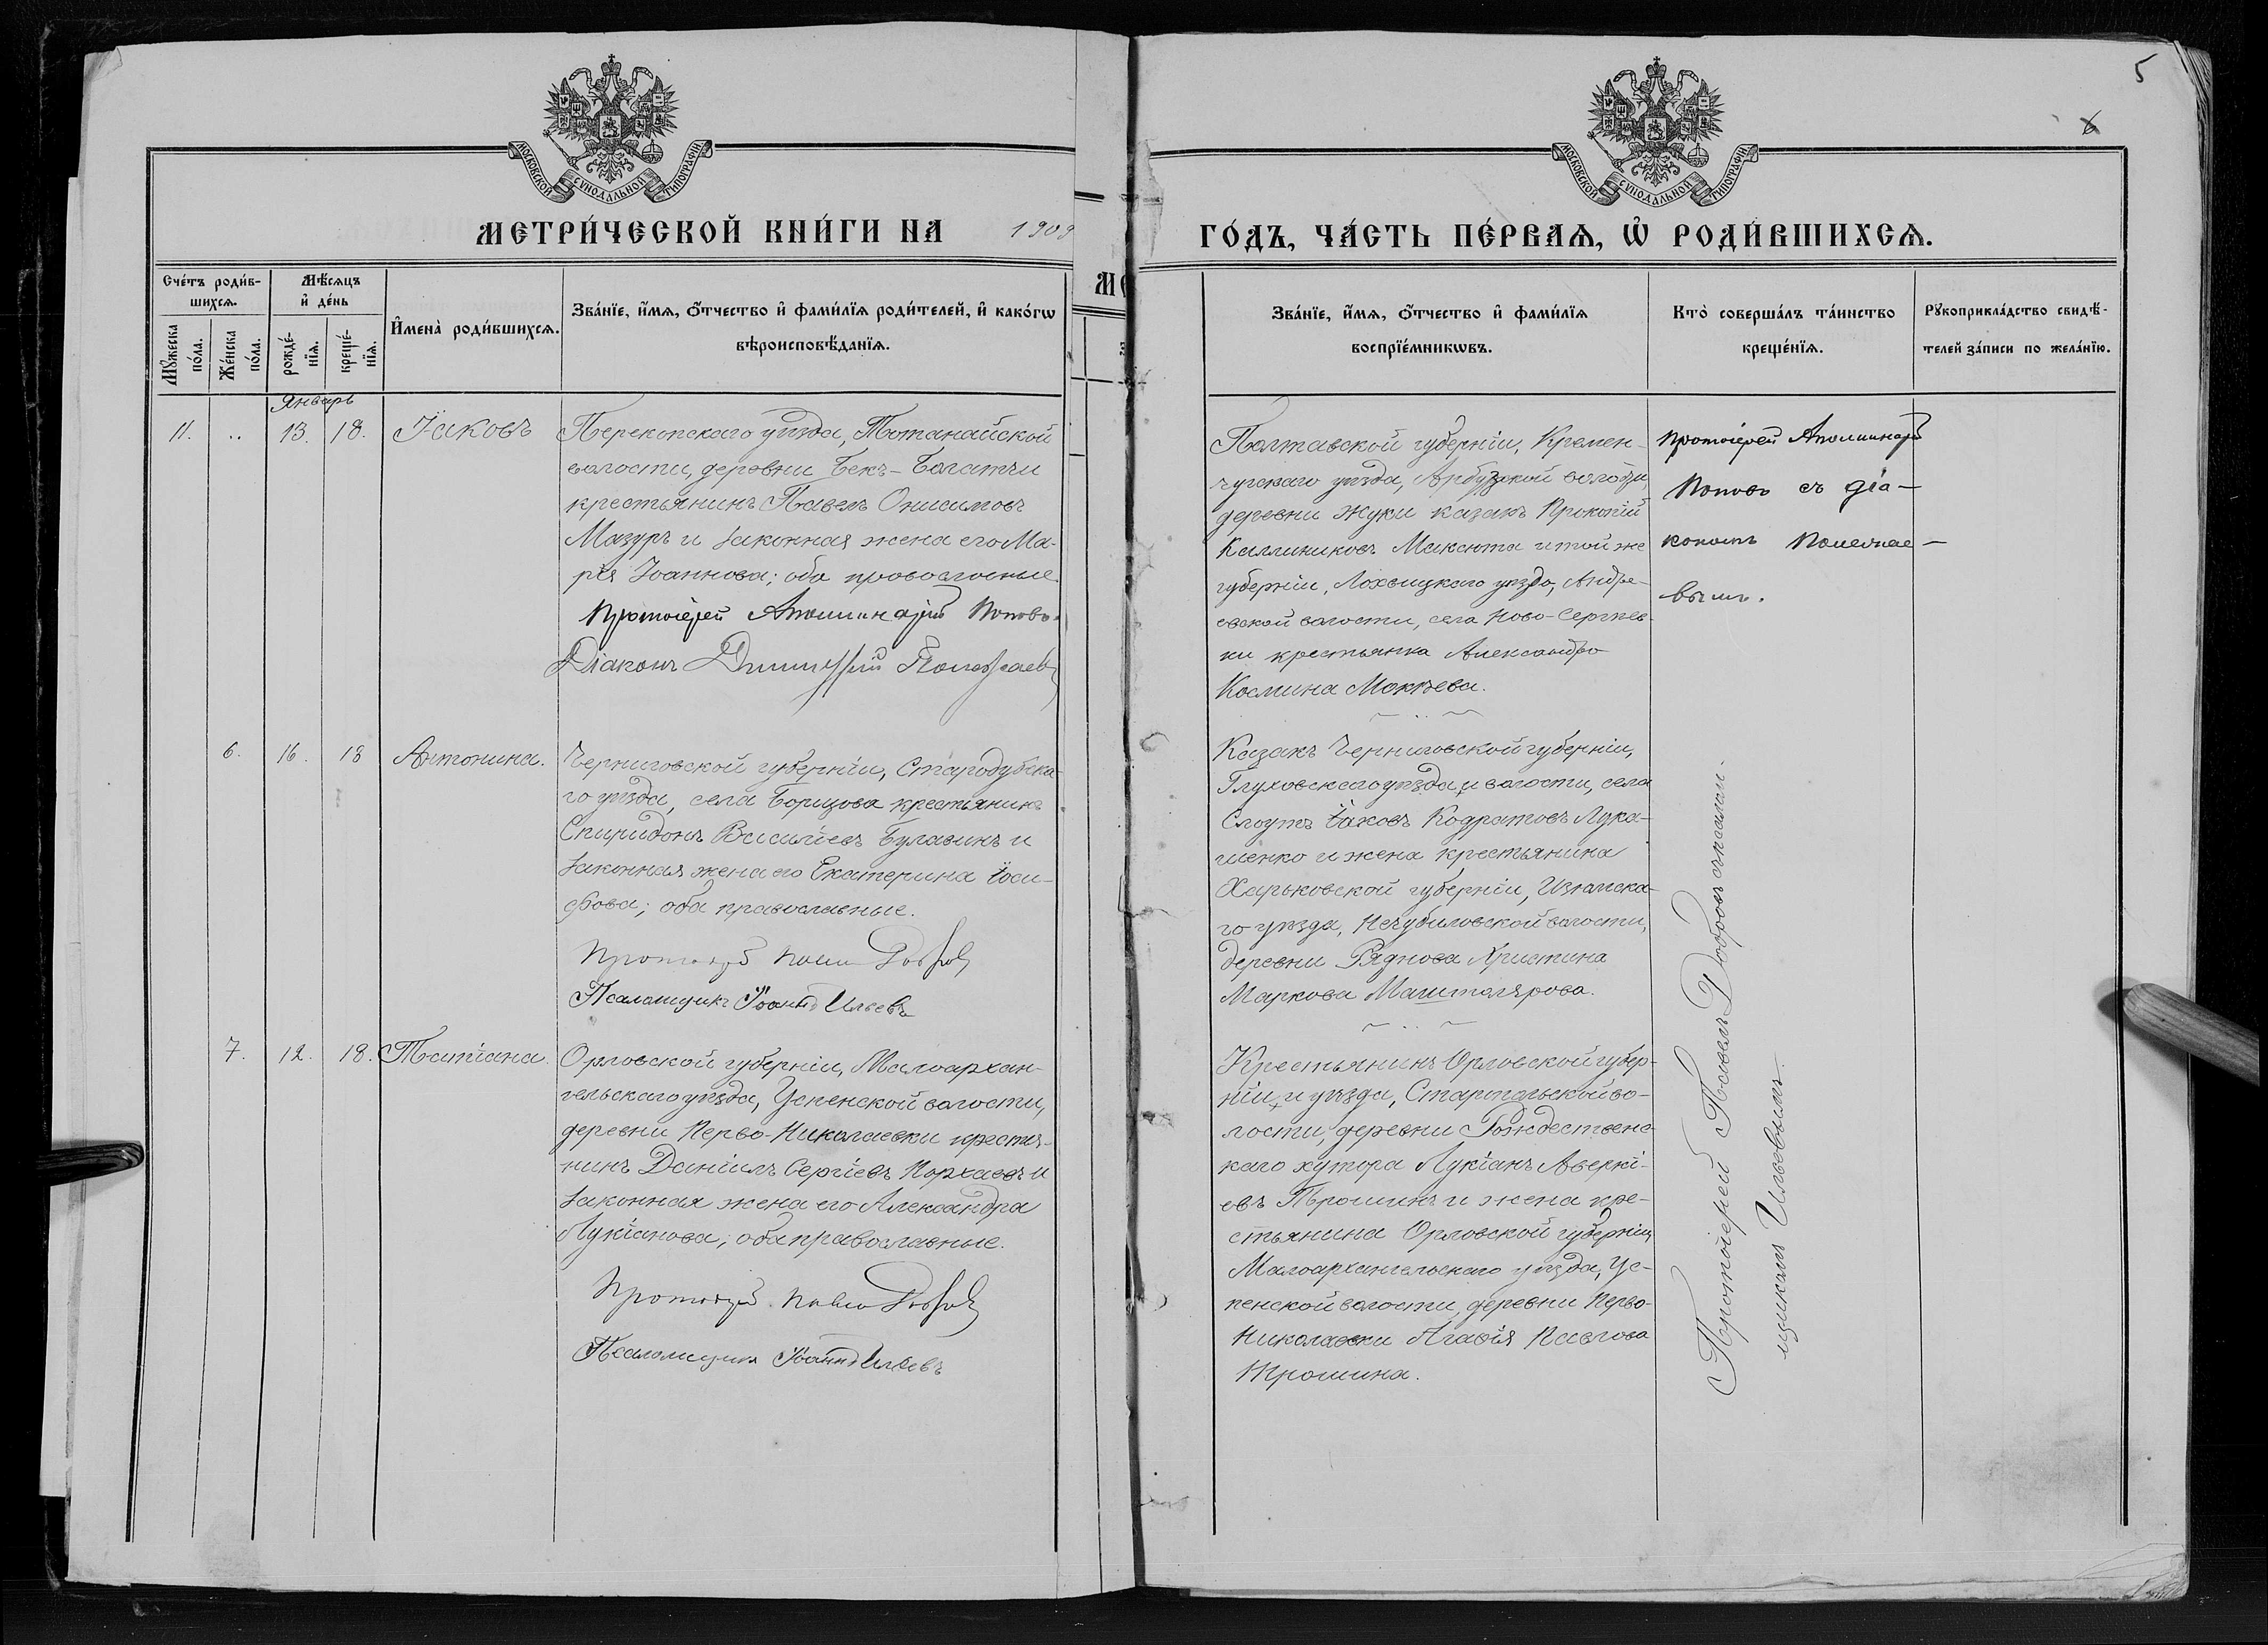 5
6
МОСКОВСКОЙ СѴНОДАЛЬНОЙ ТИПОГРАФІИ
МОСКОВСКОЙ СѴНОДАЛЬНОЙ ТИПОГРАФІИ
МЕТРИ́ЧЕСКОЙ КНИ́ГИ НА 1909
ГО́ДЪ, ЧА́СТЬ ПЕ́РВАѦ, Ѡ҆ РОДИ́ВШИХСѦ.
Сче́тъ роди́в-
шихсѧ.
Мꙋ́жеска по́ла.
Же́нска по́ла.
Мѣ́сѧцъ
и҆ де́нь
рожде́-
нїѧ.
креще́-
нїѧ.
И҆мена̀ роди́вшихсѧ.
Зва́нїе, и҆́мѧ, ѻ҆́тчество и҆ фами́лїѧ роди́телей, и҆ како́гѡ
вѣроисповѣ́данїѧ.
Зва́нїе, и҆́мѧ, ѻ҆́тчество и҆ фами́лїѧ
воспрїе́мникѡвъ.
Кто̀ соверша́лъ та́инство
креще́нїѧ.
Рꙋкоприкла́дство свидѣ́-
телей за́писи по жела́нїю.
Январь
11. .. 13. 18. Іаковъ
Перекопскаго уѣзда, Тотанайской
волости, деревни Бекъ-Болатчи
крестьянинъ Павелъ Онисимовъ
Мазуръ и законная жена его Ма-
рія Іоаннова; оба православные.
Протоіерей Аполлинарій Поповъ.
Діаконъ Димитрій
Полтавской губерніи, Кремен-
чугскаго уѣзда, волости,
деревни Жуки казакъ Прокопій
Каллиниковъ Максюта и той же
губерніи, Лохвицкаго уѣзда, Андре-
евской волости, села Ново-Сергѣев-
ки крестьянка Александра
Космина Мокѣева.
Протоіерей Аполлинарій
Поповъ съ діа-
кономъ
вымъ.
6. 16. 18 Антонина.
Черниговской губерніи, Стародубска-
го уѣзда, села Борщова крестьянинъ
Спиридонъ Василіевъ Булавинъ и
законная жена его Екатерина Іоси-
фова; оба православные.
Протоіерей Павелъ Добровъ
Псаломщикъ Іоаннъ Ильевъ
Казакъ Черниговской губерніи,
Глуховскаго уѣзда и волости, села
Слоутъ Іаковъ Кодратовъ Лука-
шенко и жена крестьянина
Харьковской губерніи, Изюмска-
го уѣзда, волости,
деревни Христина
Маркова Маштолярова.
7. 12. 18. Татіана.
Орловской губерніи, Малоархан-
гельскаго уѣзда, Успенской волости,
деревни Перво-Николаевки крестья-
нинъ Даніилъ Сергіевъ Порхаевъ и
законная жена его Александра
Лукіанова; оба православные.
Протоіерей Павелъ Добровъ
Псаломщикъ Іоаннъ Ильевъ
Крестьянинъ Орловской губер-
ніи и уѣзда, во-
лости, деревни Рождественс-
каго хутора Лукіанъ Аверкі-
евъ Трошинъ и жена кре-
стьянина Орловской губерніи,
Малоархангельскаго уѣзда, Ус-
пенской волости, деревни Перво-
Николаевки Агаѳія Павлова
Трошина.
Протоіерей Павелъ Добровъ съ псалом-
щикомъ Ильевымъ.